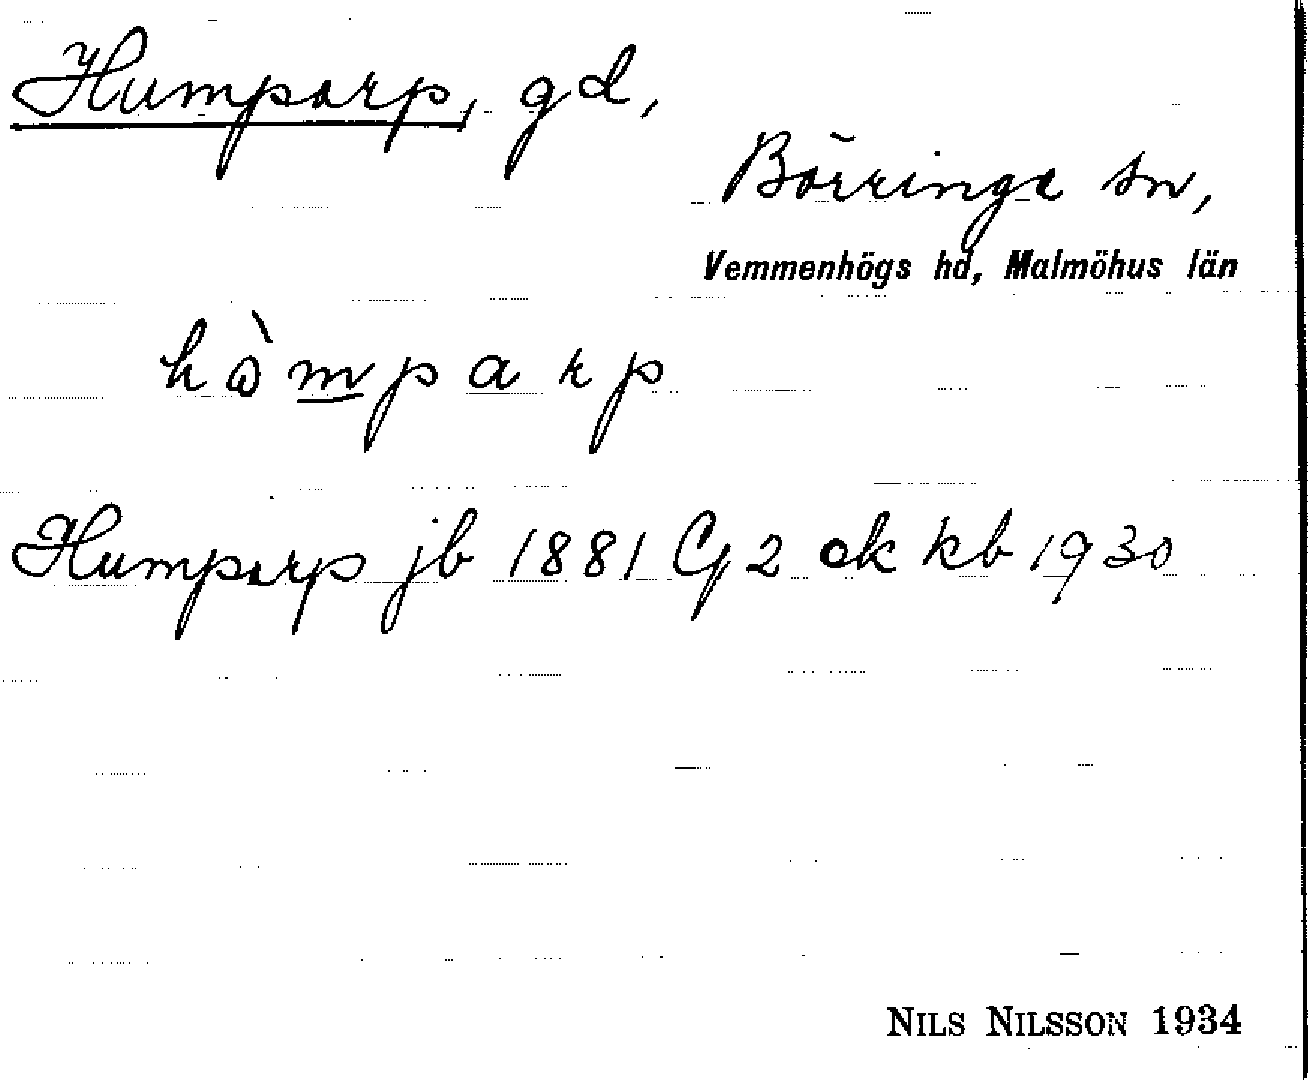 Humparp, gd,
Börringe sn,
Vemmenhögs hd, Malmöhus län
hòmparp
Humparp jb 1881 Cg 2 ek kb 1930
NILS NILSSON 1934